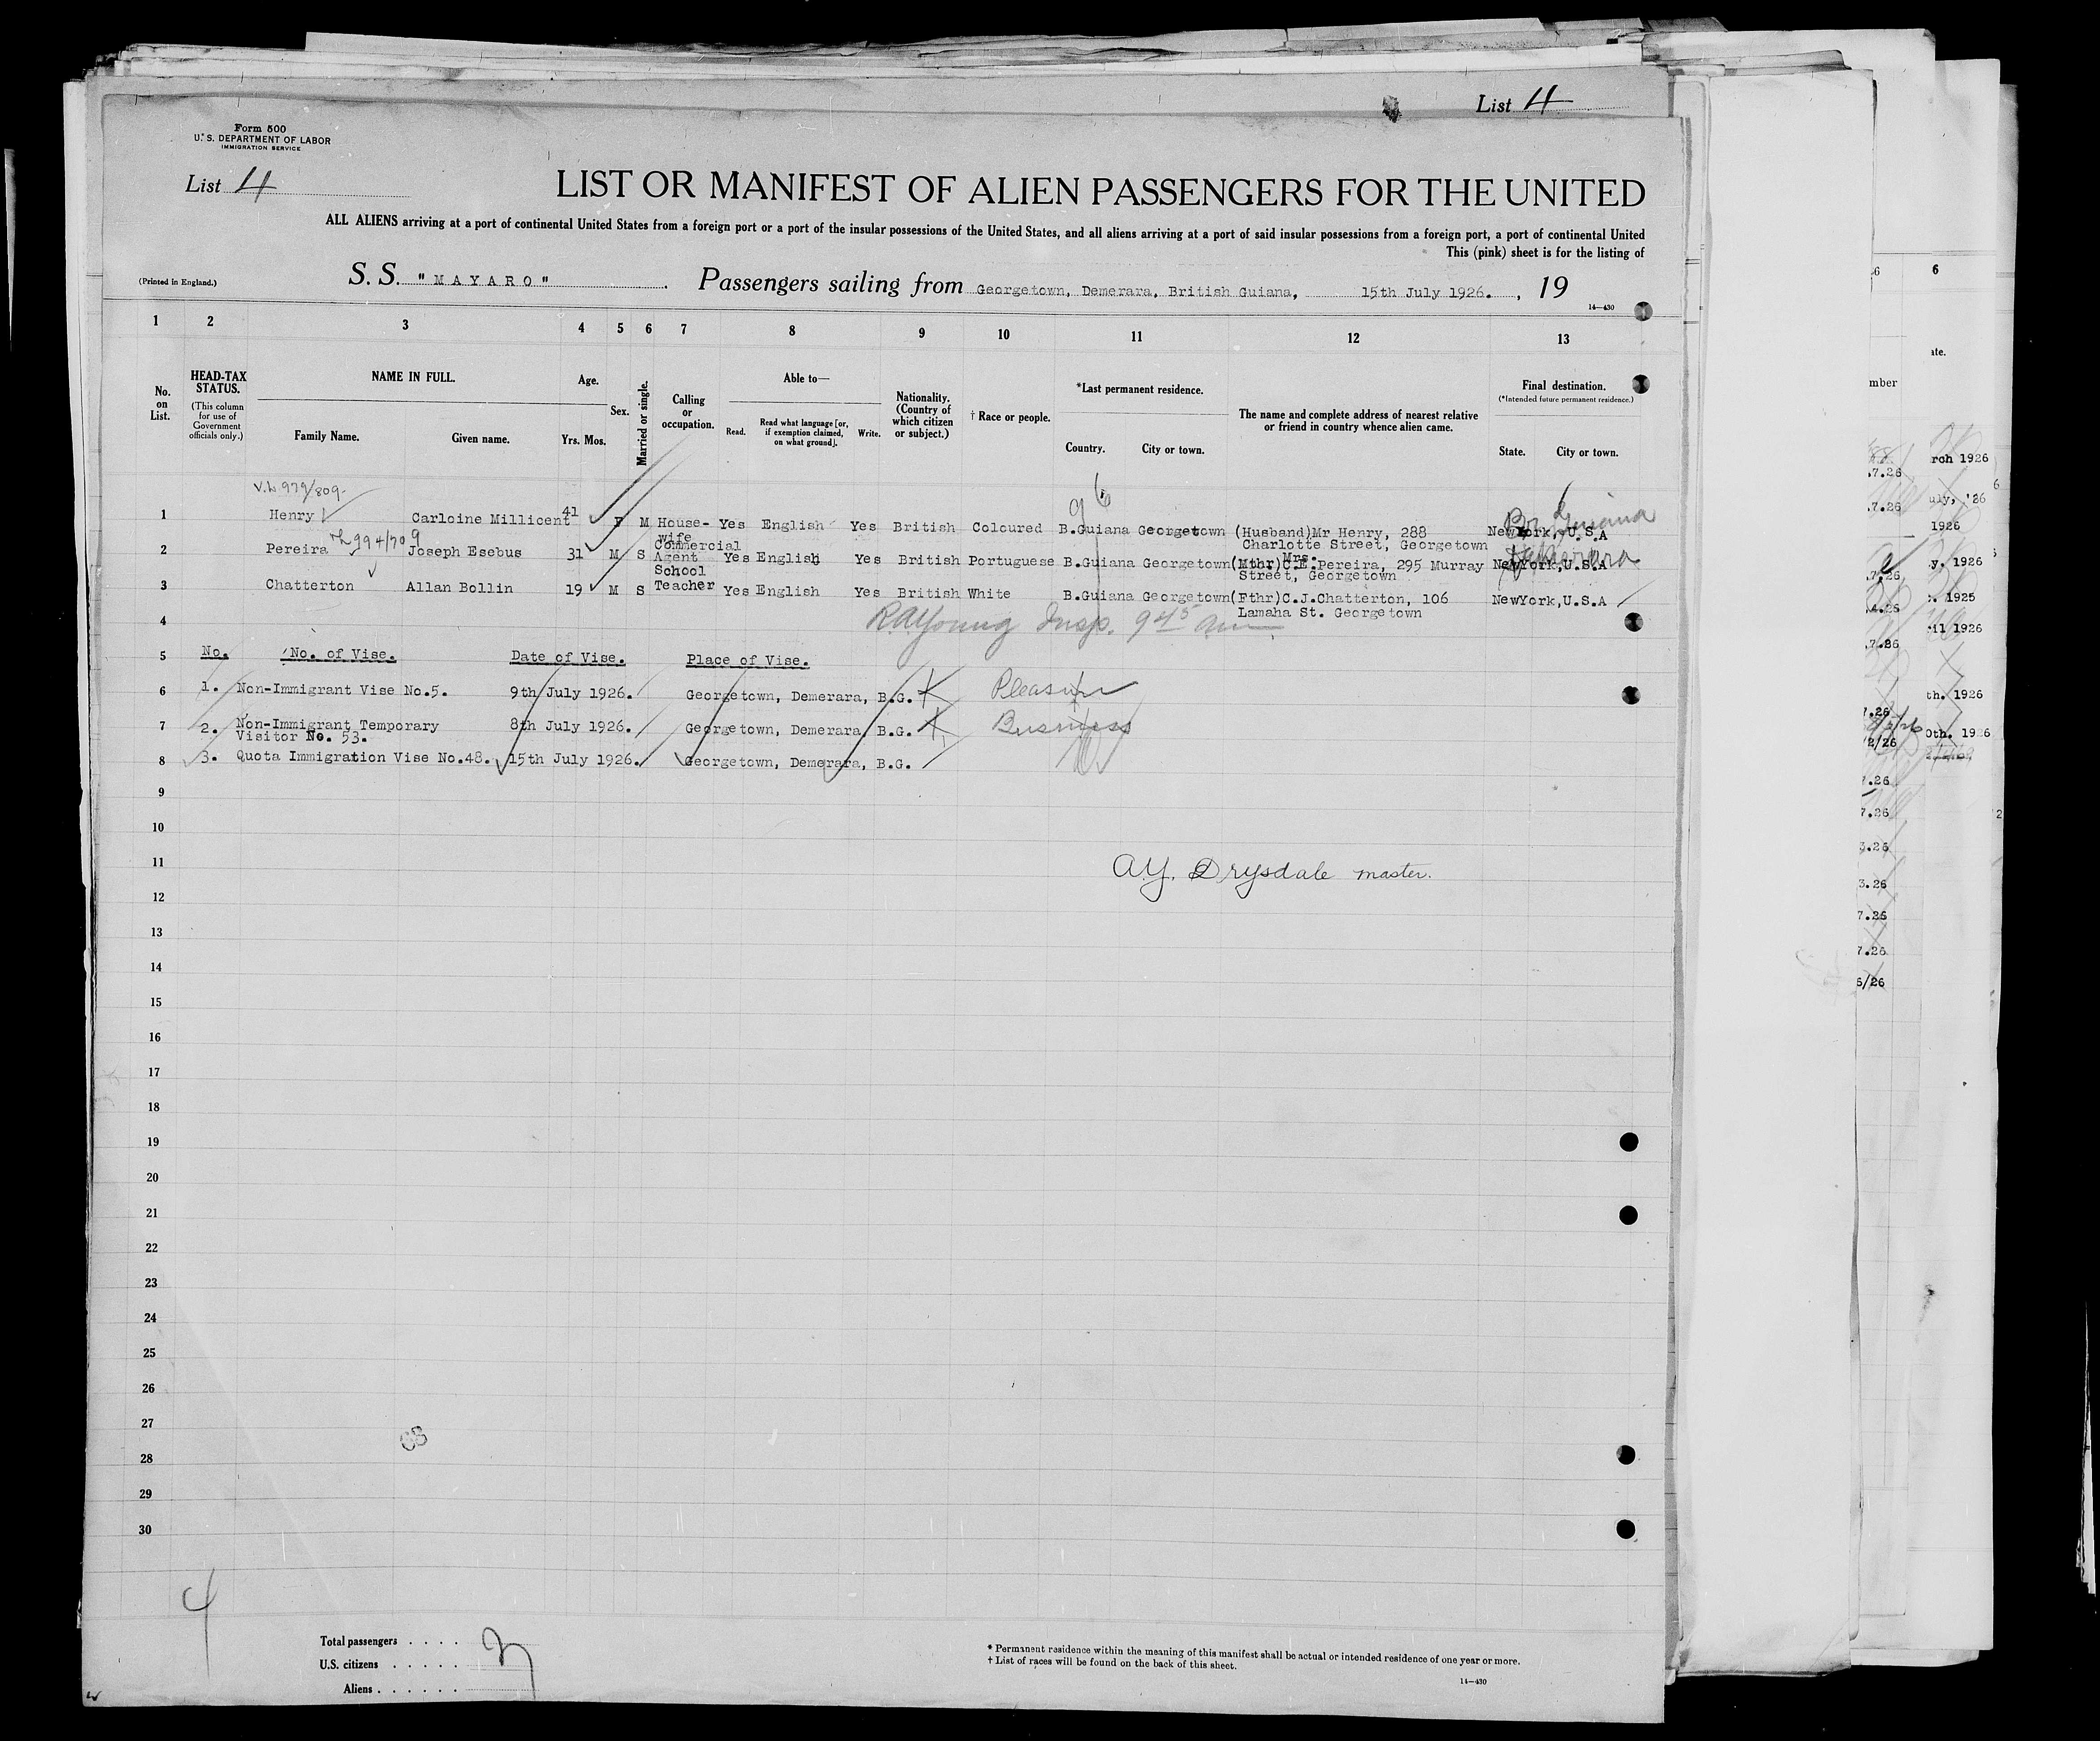 List 4
Form 500
U. S. DEPARTMENT OF LABOR
IMMIGRATION SERVICE
List 4
LIST OR MANIFEST OF ALIEN PASSENGERS FOR THE UNITED
ALL ALIENS arriving at a port of continental United States from a foreign port or a port of the insular possessions of the United States, and all aliens arriving at a port of said insular possessions from a foreign port, a port of continental United
This (pink) sheet is for the listing of
(Printed in England.)
S. S. "MAYARO" Passengers sailing from Georgetown, Demerara, British Guiana, 15th July 1926. , 19
14—430
1 2 3 4 5 6 7 8 9 10 11 12 13
No. on List.
HEAD-TAX STATUS.
(This column for use of Government officials only.)
NAME IN FULL.
Family Name. Given name.
Age.
Yrs. Mos.
Sex.
Married or single.
Calling or occupation.
Able to—
Read. Read what language [or, if exemption claimed, on what ground]. Write.
Nationality. (Country of which citizen or subject.)
† Race or people.
*Last permanent residence.
Country. City or town.
The name and complete address of nearest relative or friend in country whence alien came.
Final destination.
(*Intended future permanent residence.)
State. City or town.
96
1 Henry Carloine Millicent 41 F M House-wife Yes English Yes British Coloured B.Guiana Georgetown (Husband)Mr Henry, 288 Charlotte Street, Georgetown NewYork, U.S.A
Br. Guiana
2 Pereira Joseph Esebus 31 M S Commercial Agent Yes English Yes British Portuguese B.Guiana Georgetown (Mthr) Mrs. C.E.Pereira, 295 Murray Street, Georgetown NewYork,U.S.A
3 Chatterton Allan Bollin 19 M S School Teacher Yes English Yes British White B.Guiana Georgetown (Fthr)C.J.Chatterton, 106 Lamaha St. Georgetown NewYork,U.S.A
4 RAYoung Insp. 9 45 am
5 No. No. of Vise. Date of Vise. Place of Vise.
6 1. Non-Immigrant Vise No.5. 9th July 1926. Georgetown, Demerara, B.G. Pleasure
7 2. Non-Immigrant Temporary Visitor No. 53. 8th July 1926. Georgetown, Demerara, B.G. Business
8 3. Quota Immigration Vise No.48. 15th July 1926. Georgetown, Demerara, B.G.
9
10
11 A.Y. Drysdale master.
12
13
14
15
16
17
18
19
20
21
22
23
24
25
26
27
28
29
30
4
Total passengers . . . .
U.S. citizens . . . . .
Aliens . . . . . .
* Permanent residence within the meaning of this manifest shall be actual or intended residence of one year or more.
† List of races will be found on the back of this sheet.
14—430
6
mber
rch 1926
uly, '26
1926
y. 1926
1925
il 1926
th. 1926
0th. 1926